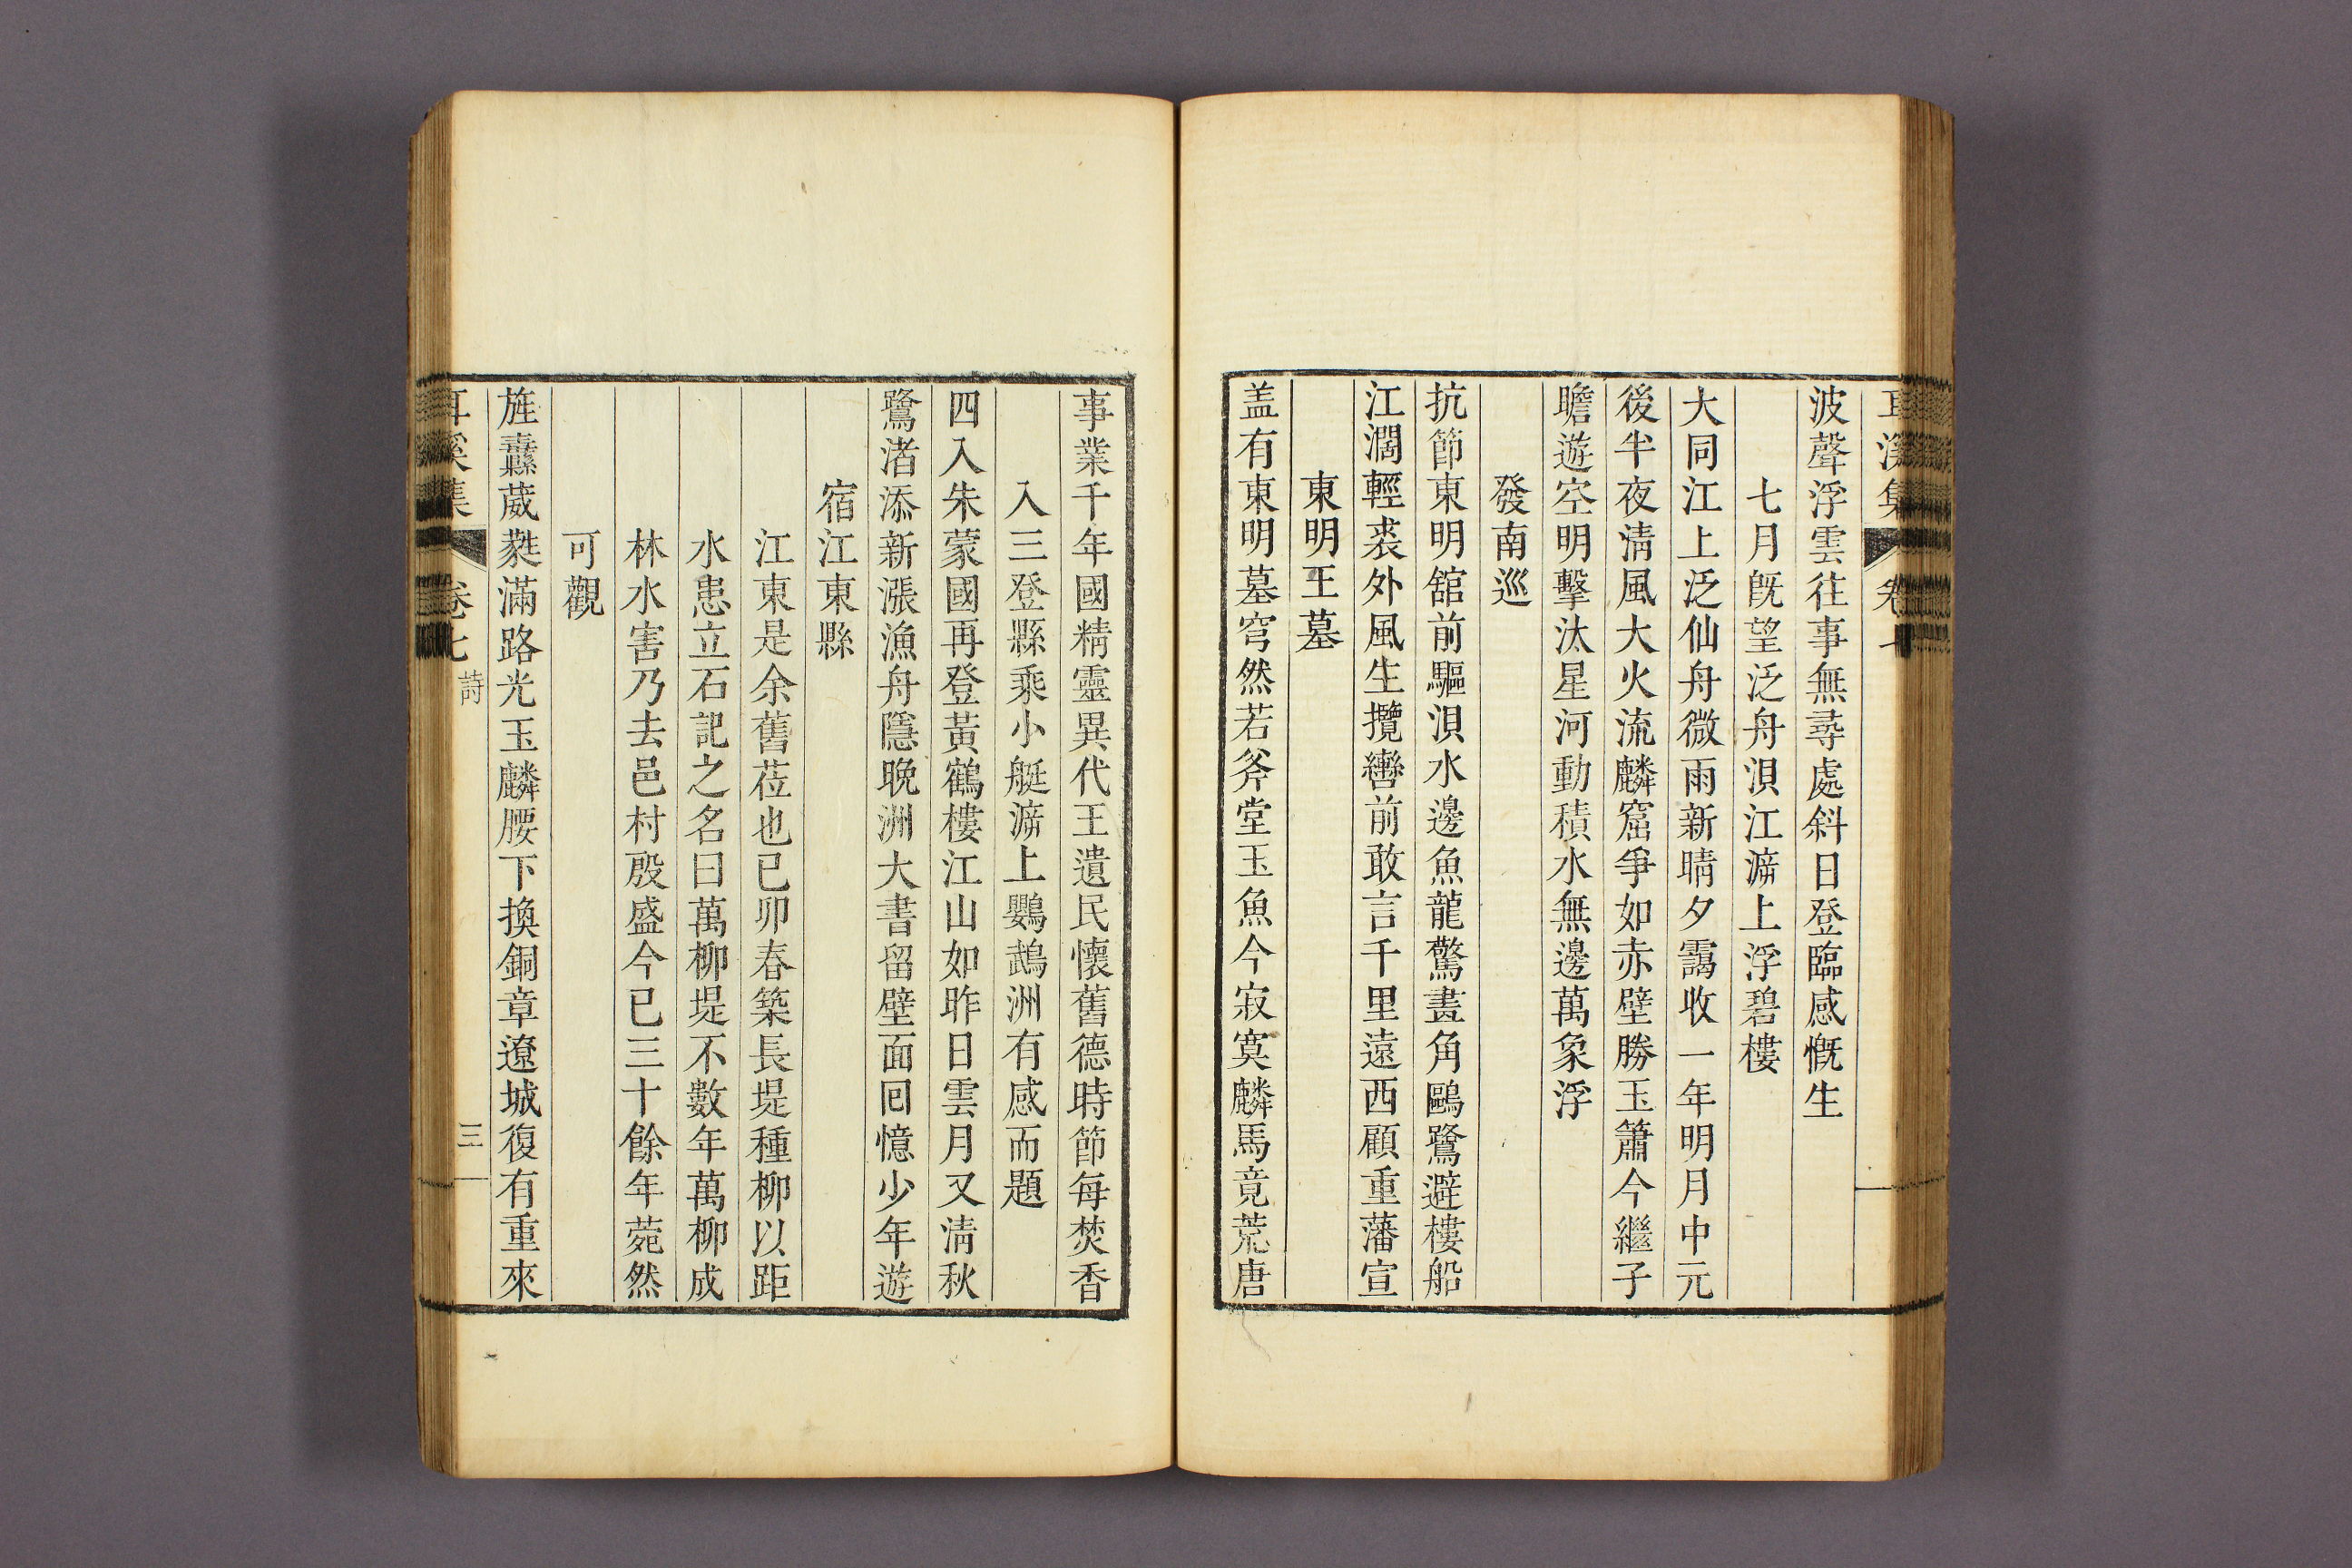 耳溪集 卷七
波聲浮雲往事無尋處斜日登臨感慨生
七月旣望泛舟浿江溯上浮碧樓
大同江上泛仙舟微雨新晴夕靄收一年明月中元
後半夜淸風大火流麟窟爭如赤壁勝玉簫今繼子
瞻遊空明擊汰星河動積水無邊萬象浮
發南巡
抗節東明舘前驅浿水邊魚龍驚畫角鷗鷺避樓船
江濶輕裘外風生攬轡前敢言千里遠西顧重藩宣
東明王墓
盖有東明墓穹然若斧堂玉魚今寂寞麟馬竟荒唐
事業千年國精靈異代王遺民懷舊德時節每焚香
入三登縣乘小艇溯上鸚鵡洲有感而題
四入朱蒙國再登黃鶴樓江山如昨日雲月又淸秋
鷺渚添新漲漁舟隱晚洲大書留壁面回憶少年遊
宿江東縣
江東是余舊莅也已卯春築長堤種柳以距
水患立石記之名曰萬柳堤不數年萬柳成
林水害乃去邑村殷盛今已三十餘年菀然
可觀
旌纛葳蕤滿路光玉麟腰下換銅章遼城復有重來
耳溪集 卷七 詩 三